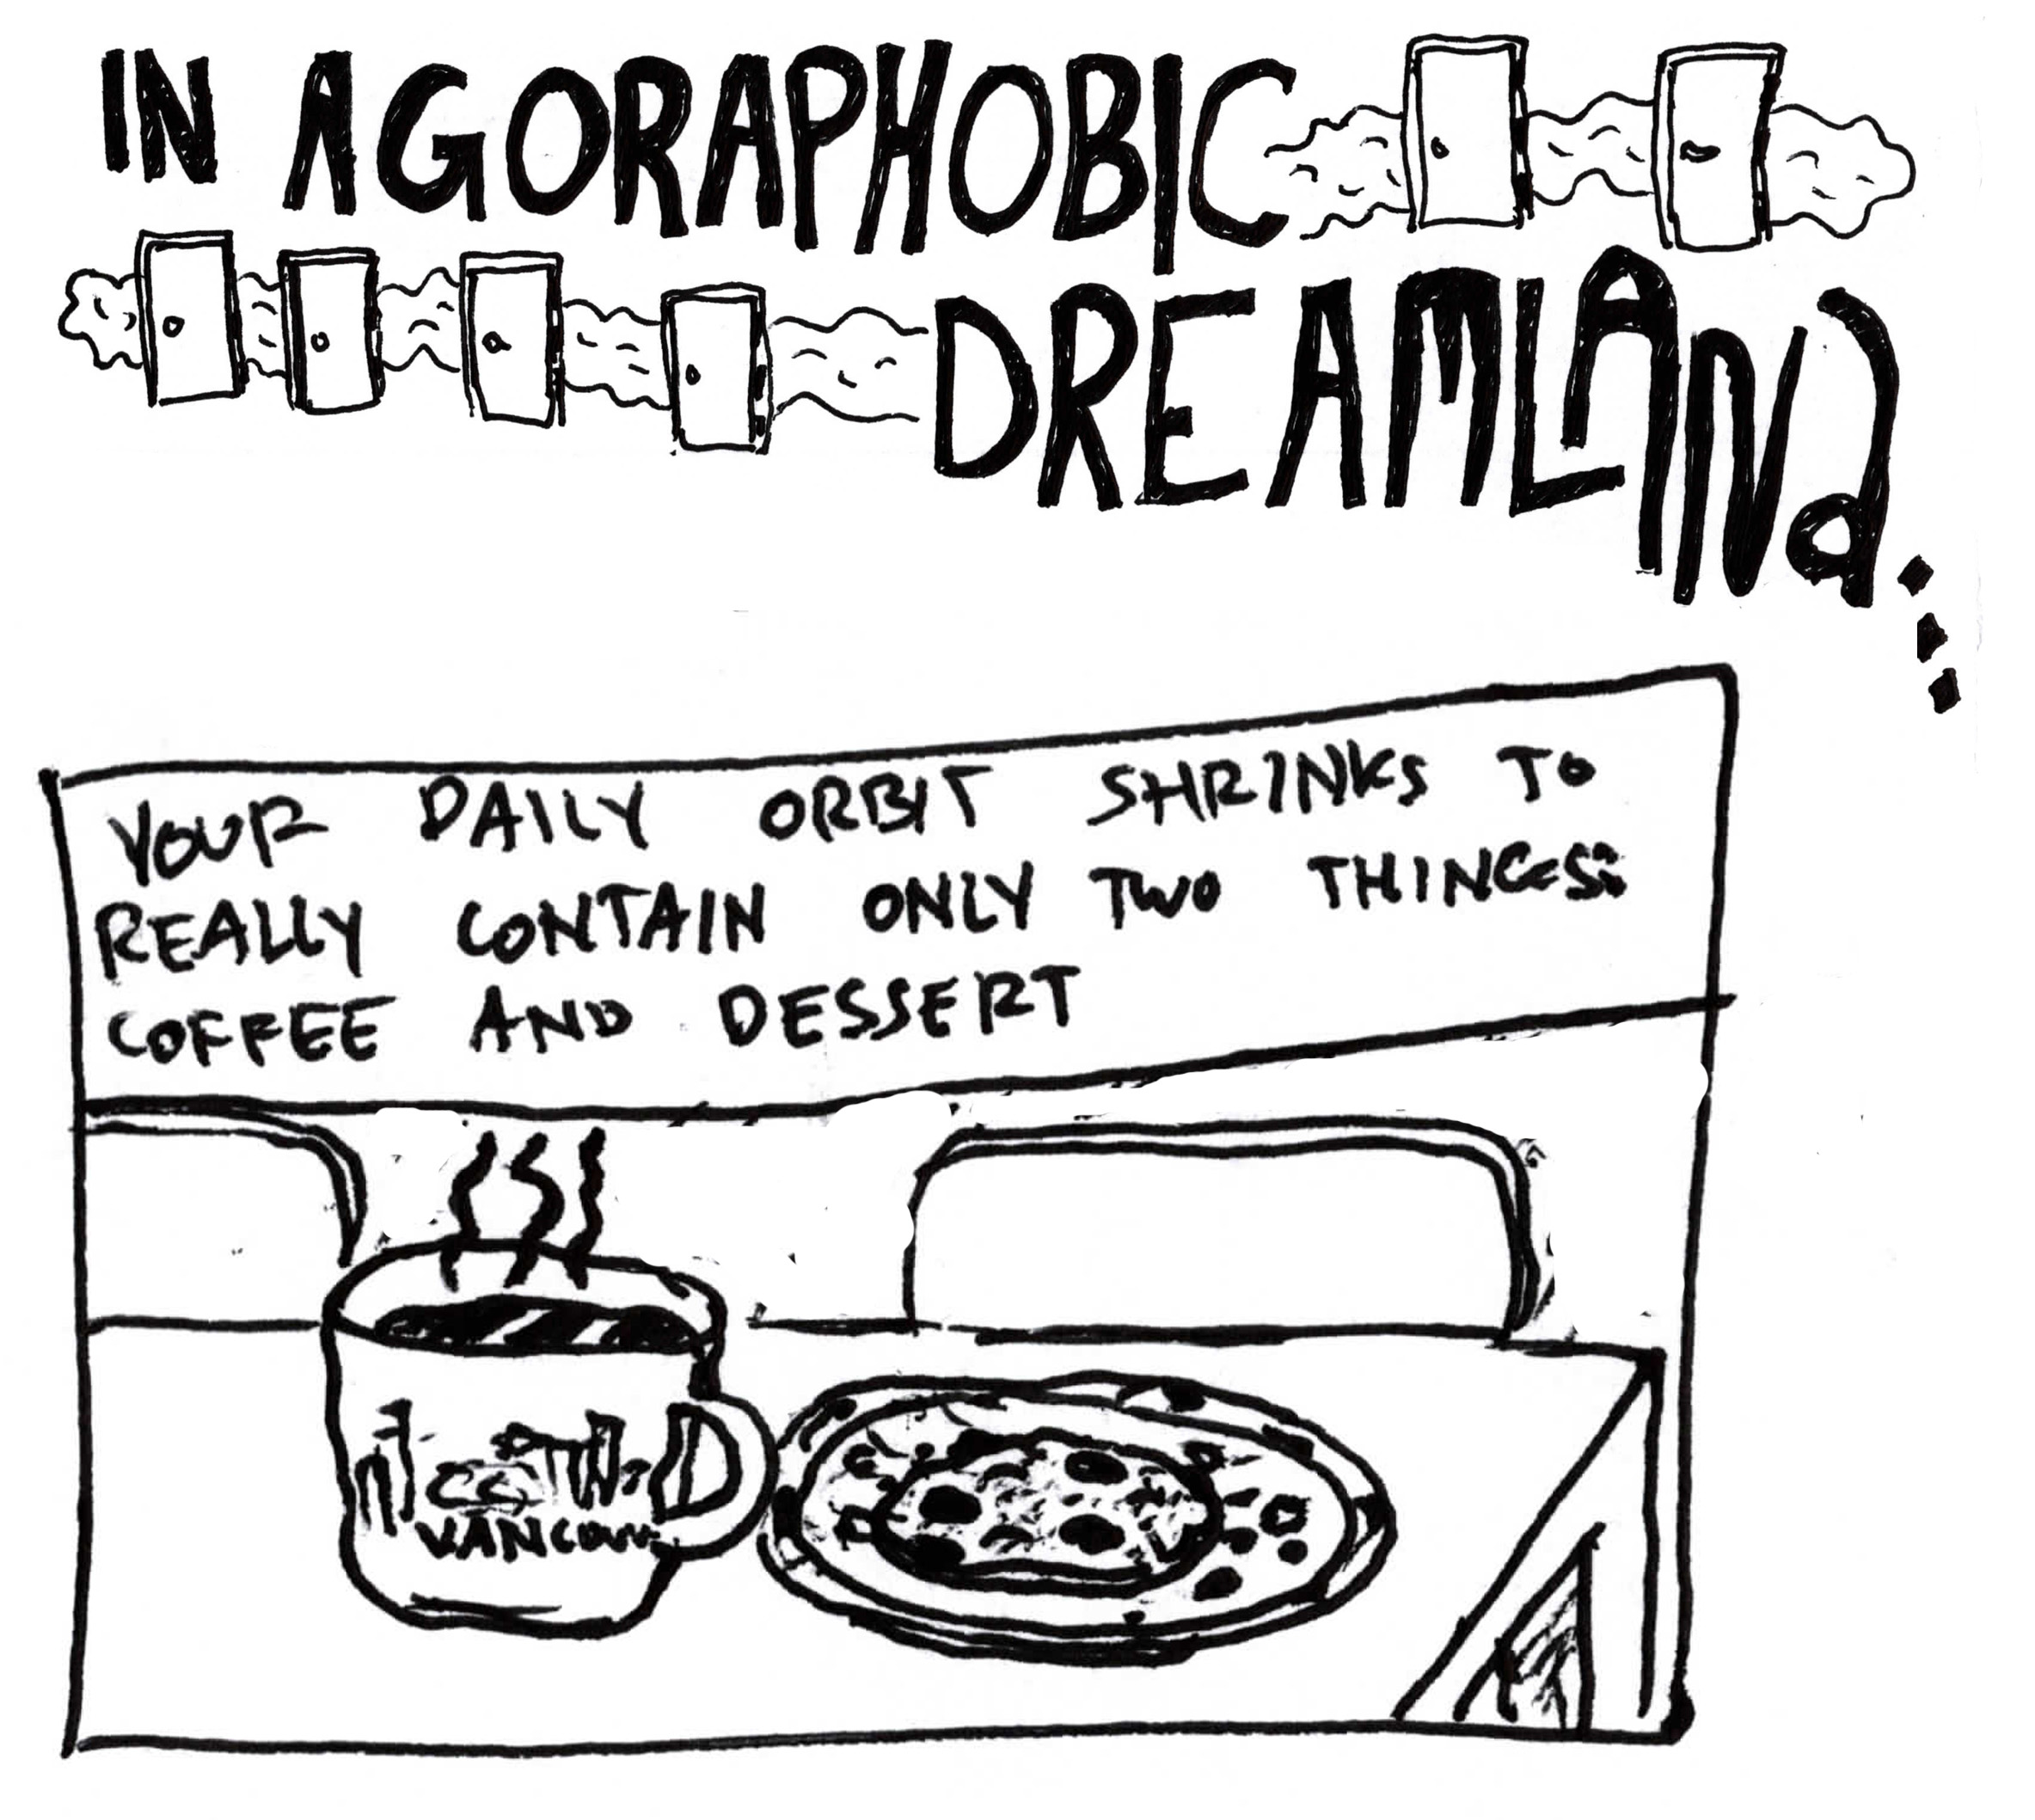 IN AGORAPHOBIC
DREAMLANd...
YOUR DAILY ORBIT SHRINKS TO
REALLY CONTAIN ONLY TWO THINGS:
COFFEE AND DESSERT